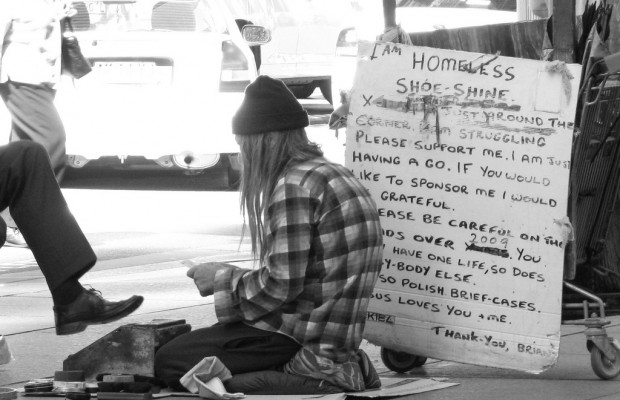 I AM HOMELESS
SHOE-SHINE
JUST AROUND THE
CORNER. I AM STRUGGLING
PLEASE SUPPORT ME. I AM JUST
HAVING A GO. IF YOU WOULD
LIKE TO SPONSOR ME I WOULD
GRATEFUL.
EASE BE CAREFUL ON THE
ADS OVER 2009 YOU
Y HAVE ONE LIFE, SO DOES
Y-BODY ELSE.
SO POLISH BRIEF-CASES.
SUS LOVES YOU & ME.
THANK-YOU, BRIA